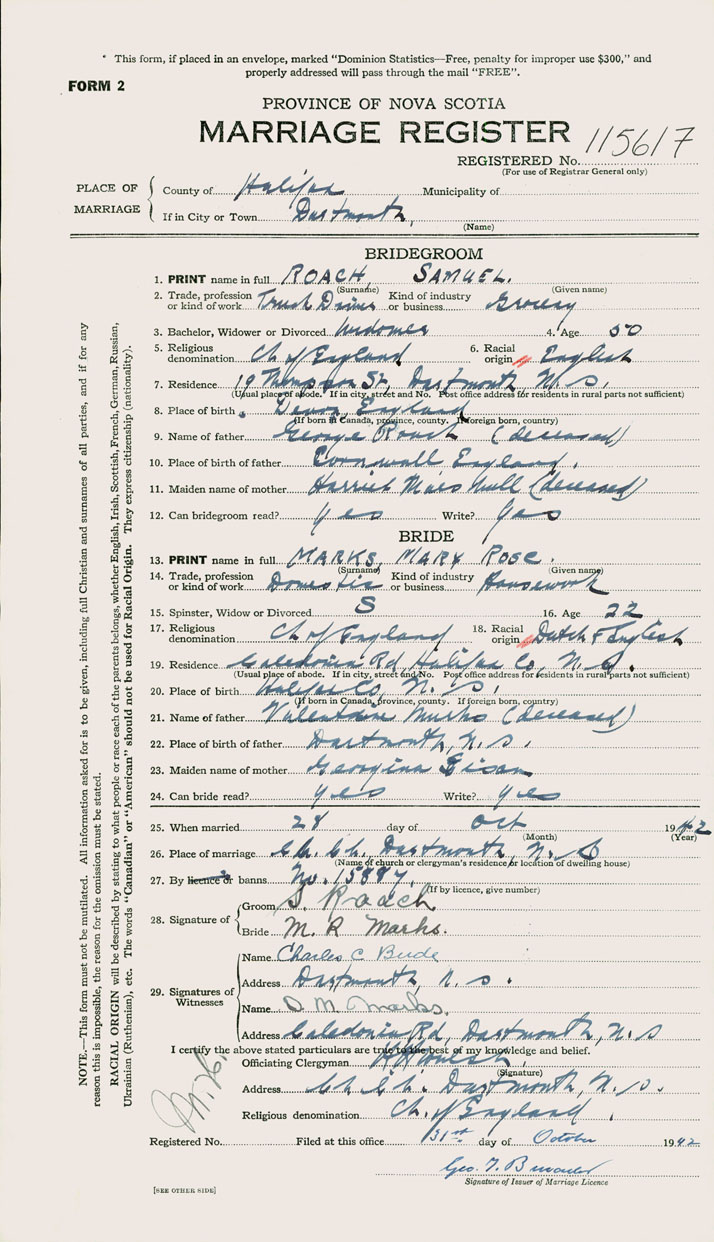 * This form, if placed in an envelope, marked "Dominion Statistics—Free, penalty for improper use $300," and
properly addressed will pass through the mail "FREE".
FORM 2
PROVINCE OF NOVA SCOTIA
MARRIAGE REGISTER
115617
REGISTERED No.
(For use of Registrar General only)
PLACE OF MARRIAGE
County of Halifax Municipality of
If in City or Town Dartmouth,
(Name)
BRIDEGROOM
1. PRINT name in full ROACH, SAMUEL.
(Surname) (Given name)
2. Trade, profession or kind of work Truck Driver Kind of industry or business Grocery
3. Bachelor, Widower or Divorced Widower 4. Age 50
5. Religious denomination Ch of England 6. Racial origin English
7. Residence 19 Thompson St, Dartmouth, N.S.
(Usual place of abode. If in city, street and No. Post office address for residents in rural parts not sufficient)
8. Place of birth Devon, England
(If born in Canada, province, county. If foreign born, country)
9. Name of father George Roach (deceased)
10. Place of father Cornwall England.
11. Maiden name of mother Harriet (deceased)
12. Can bridegroom read? yes Write? yes
BRIDE
13. PRINT name in full MARKS, MARY ROSE.
(Surname) (Given name)
14. Trade, profession or kind of work Domestic Kind of industry or business Housework
15. Spinster, Widow or Divorced S 16. Age 22
17. Religious denomination Ch of England 18. Racial origin Dutch & English
19. Residence Caledonia Rd, Halifax Co, N.S.
(Usual place of abode. If in city, street and No. Post office address for residents in rural parts not sufficient)
20. Place of birth Halifax Co, N.S.
(If born in Canada, province, county. If foreign born, country)
21. Name of father Valentine Marks (deceased)
22. Place of birth of father Dartmouth, N.S.
23. Maiden name of mother Georgina Eisan
24. Can bride read? yes Write? yes
25. When married 28 day of Oct 1942
(Month) (Year)
26. Place of marriage Ch. Ch. Dartmouth, N.S
(Name of church or clergyman's residence or location of dwelling house)
27. By licence or banns No. 15887.
(If by licence, give number)
28. Signature of
Groom S. Roach
Bride M. R Marks.
29. Signatures of Witnesses
Name Charles C
Address Dartmouth, N.S.
Name D. M. Marks.
Address Caledonia Rd, Dartmouth, N.S
I certify the above stated particulars are true to the best of my knowledge and belief.
Officiating Clergyman
(Signature)
Address Ch. Ch. Dartmouth, N.S.
Religious denomination Ch. of England.
Registered No. Filed at this office 31st day of October 1942
Geo. T.
Signature of Issuer of Marriage Licence
[SEE OTHER SIDE]
NOTE.—This form must not be mutilated. All information asked for is to be given, including full Christian and surnames of all parties, and if for any
reason this is impossible, the reason for the omission must be stated.
RACIAL ORIGIN will be described by stating to what people or race each of the parents belongs, whether English, Irish, Scottish, French, German, Russian,
Ukrainian (Ruthenian), etc. The words "Canadian" or "American" should not be used for Racial Origin. They express citizenship (nationality).